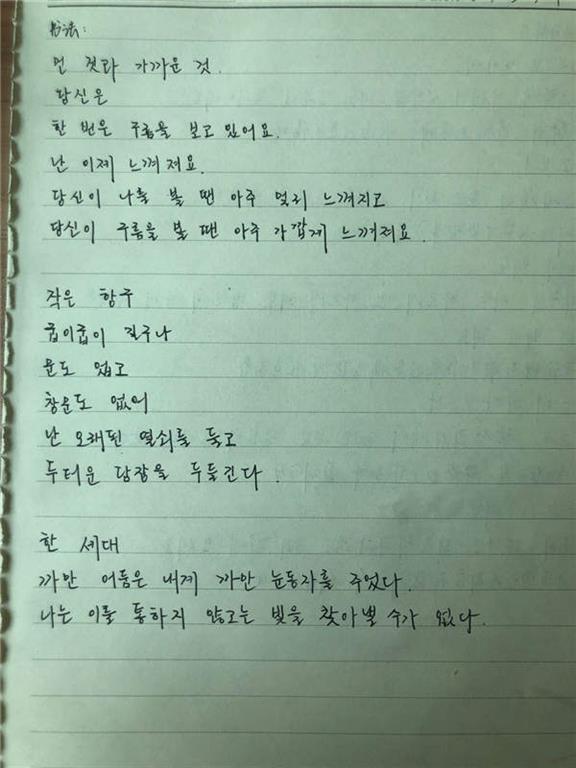 书法:
먼 것과 가까운 것.
당신은
한 번은 구름을 보고 있어요.
난 이제 느껴져요.
당신이 나를 볼 땐 아주 멀리 느껴지고
당신이 구름을 볼 땐 아주 가깝게 느껴져요.
작은 항구
굽이굽이 길구나
문도 없고
창문도 없어
난 오래된 열쇠를 들고
두터운 담장을 두들긴다.
한 세대
까만 어둠은 내게 까만 눈동자를 주었다.
나는 이를 통하지 않고는 빛을 찾아볼 수가 없다.